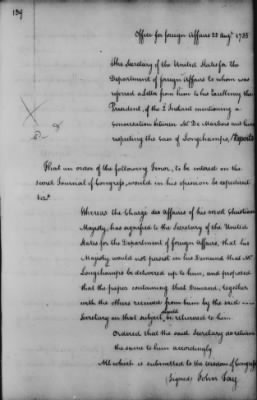 139
Office for foreign Affairs 23 Augt. 1785
The Secretary of the United States for the
Department of foreign Affairs to whom was
referred a Letter from him to his Excellency the
President, of the 2d Instant mentioning a
conversation between Mr De Marbois and him
respecting the Case of Longchamps, (Reports
That an order of the following Tenor, to be entered on the
secret Journal of Congress, would in his opinion be expedient
Vizt.
Whereas the Chargé des Affaires of his most Christian
Majesty, has signified to the Secretary of the United
States for the Department of foreign Affairs, that his
Majesty would not persist in his Demand that Mr
Longchamps be delivered up to him, and proposed
that the paper containing that Demand, together
with the others received from him by the said
Secretary on that subject, should be returned to him.
Ordered that the said Secretary do return
the same to him accordingly
All which is submitted to the wisdom of Congress
(Signed) John Jay